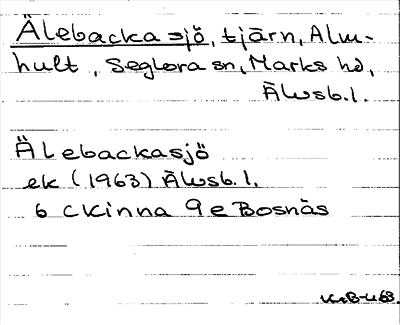 Älebacka sjö, tjärn, Alm-
hult, Seglora sn, Marks hd,
Älvsb.l.
Älebackasjö
ek (1963) Älvsb.l.
6 c Kinna 9 e Bosnäs